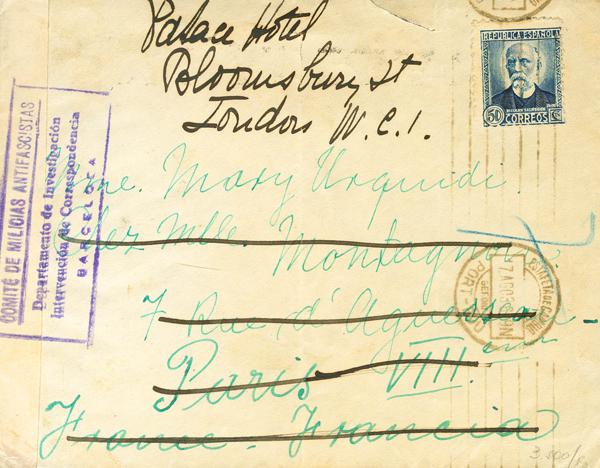 Palace Hotel
Bloomsbury St
London W.C.1.
REPUBLICA ESPAÑOLA
NICOLAS SALMERON
50 CORREOS
COMITÉ DE MILICIAS ANTIFASCISTAS
Departamento de Investigación
Intervención de Correspondencia
BARCELONA
Mme. Mary Urquidi.
Chez Mlle. Montagnon
7 Rue d'Aguesseau
Paris VIII
France - Francia
3.500/